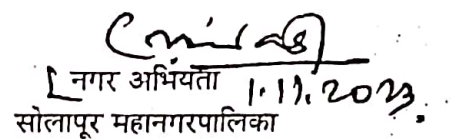 नगर अभियंता 1.11.2023
सोलापूर महानगरपालिका